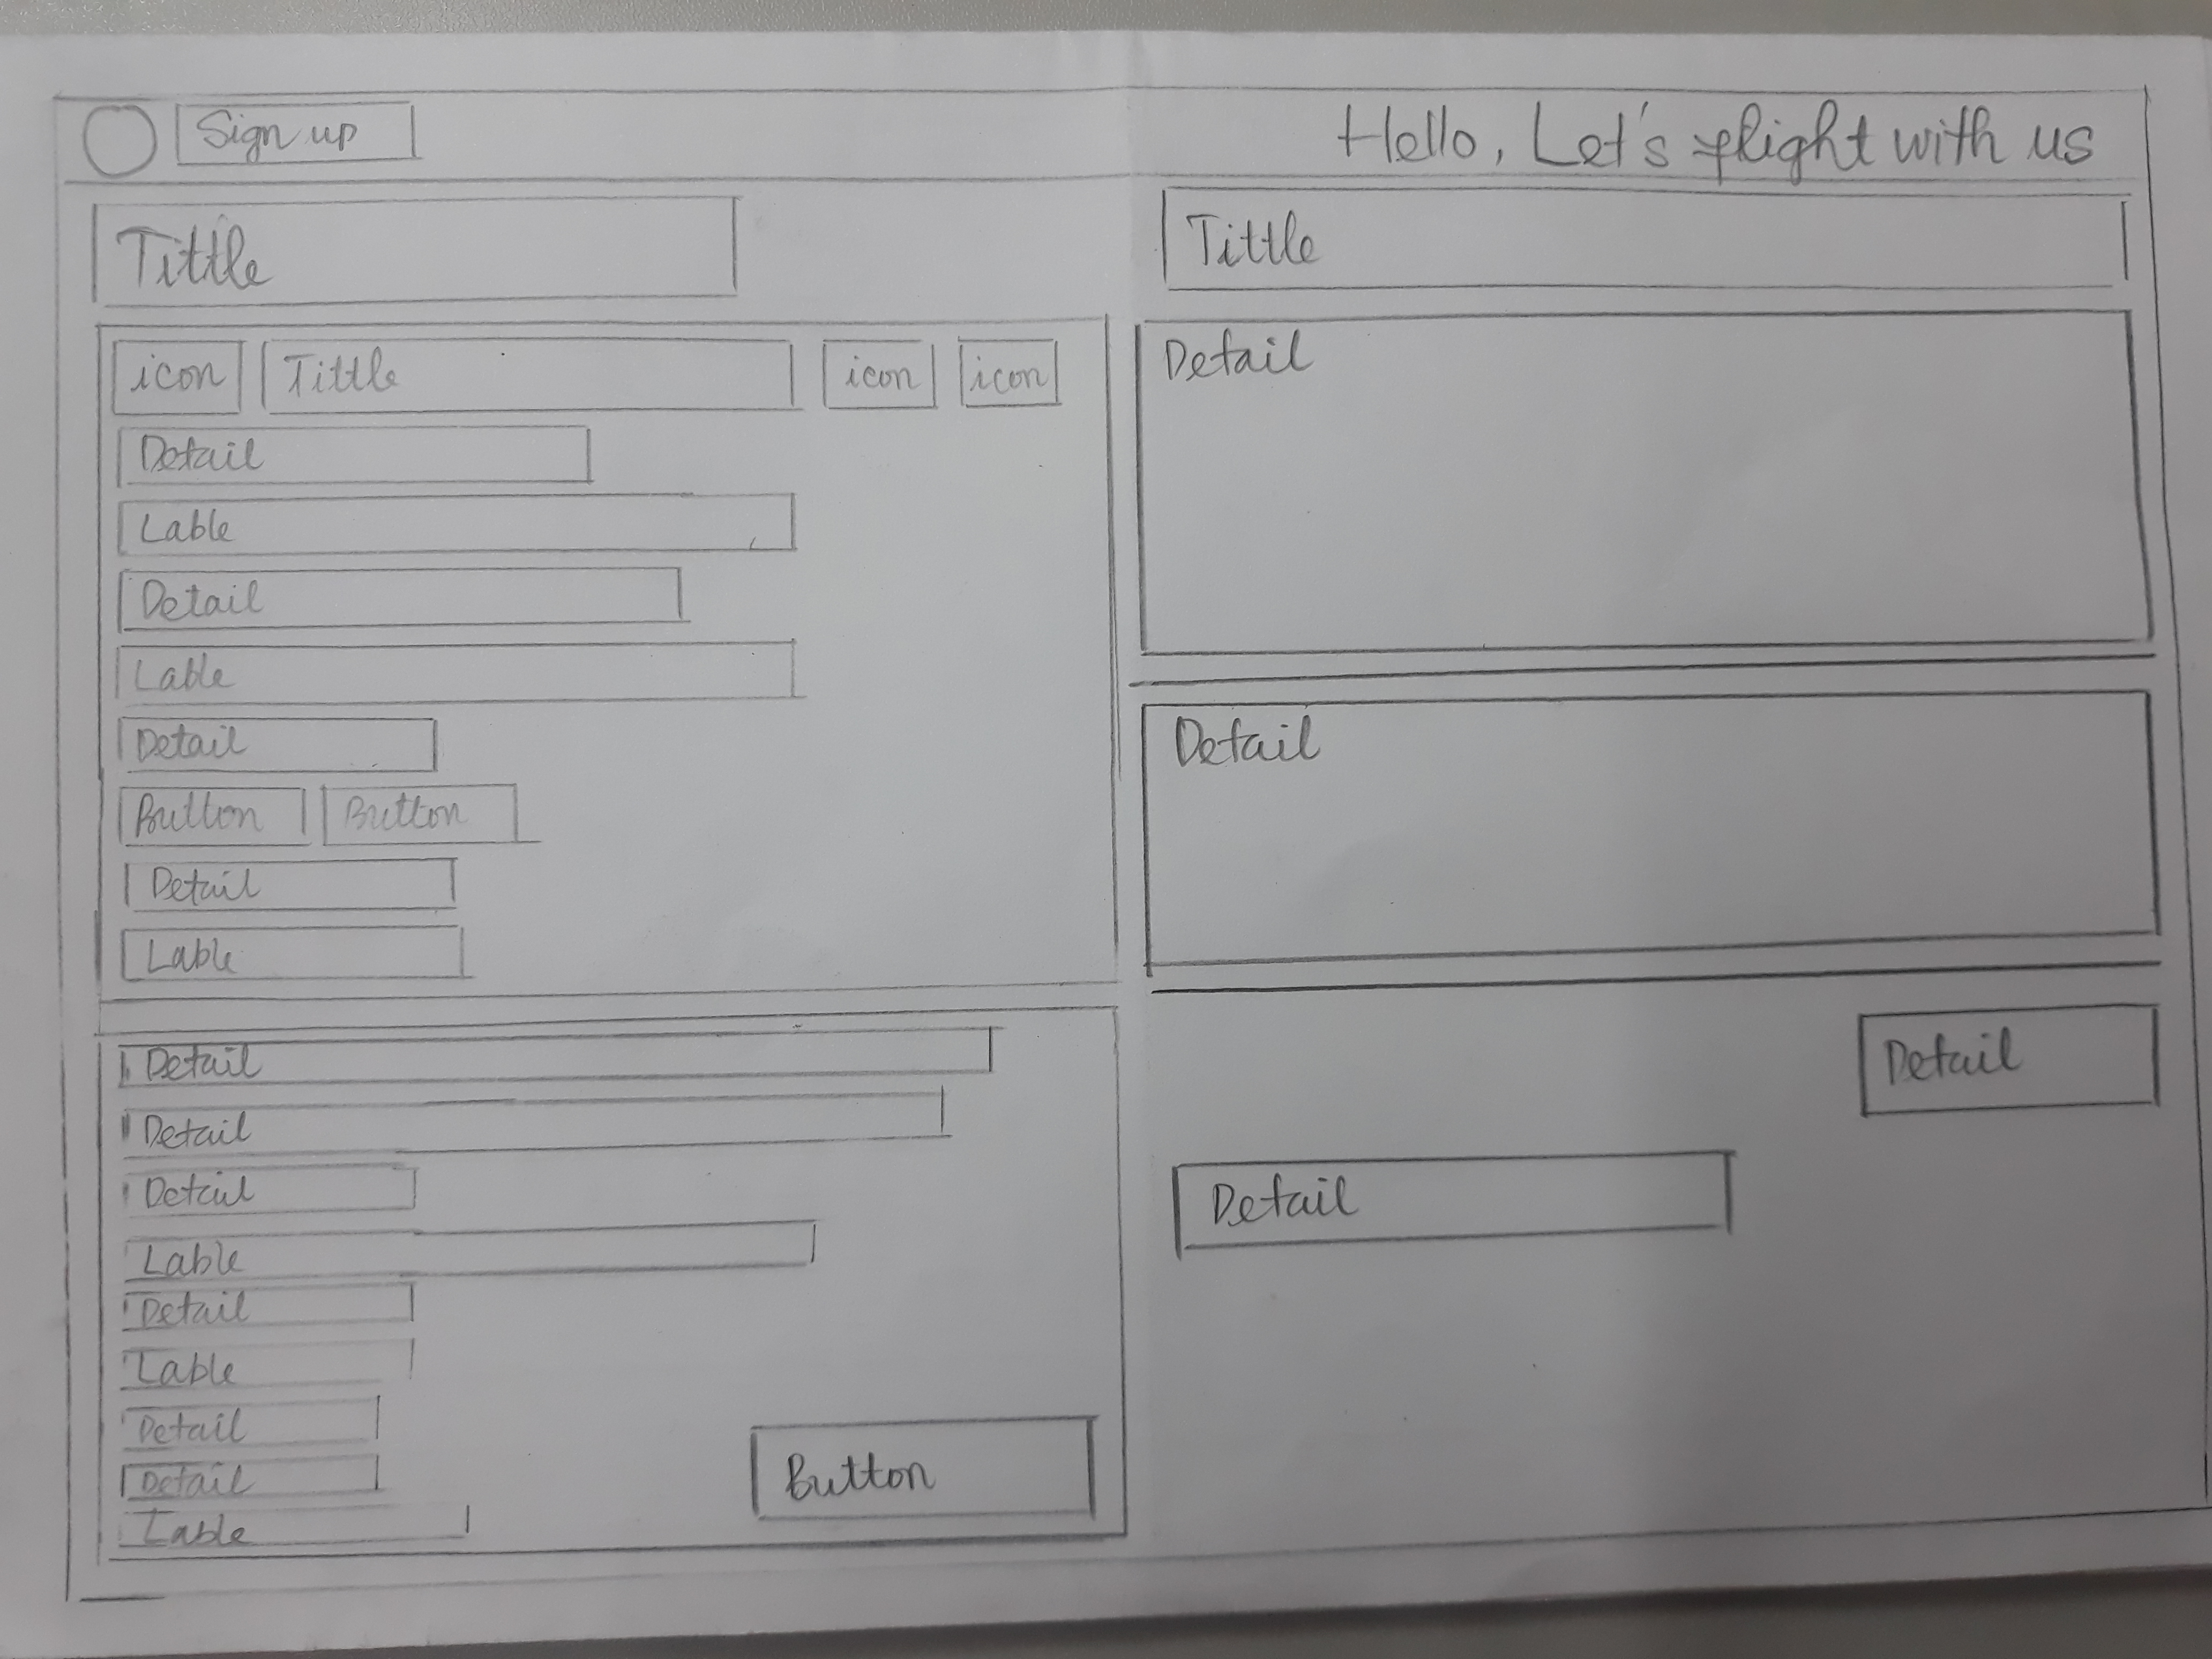 Sign up
Hello, Let's flight with us
Tittle
icon Tittle icon icon
Detail
Lable
Detail
Lable
Detail
Button Button
Detail
Lable
Detail
Detail
Detail
Lable
Detail
Lable
Detail
Detail
Lable
Button
Tittle
Detail
Detail
Detail
Detail